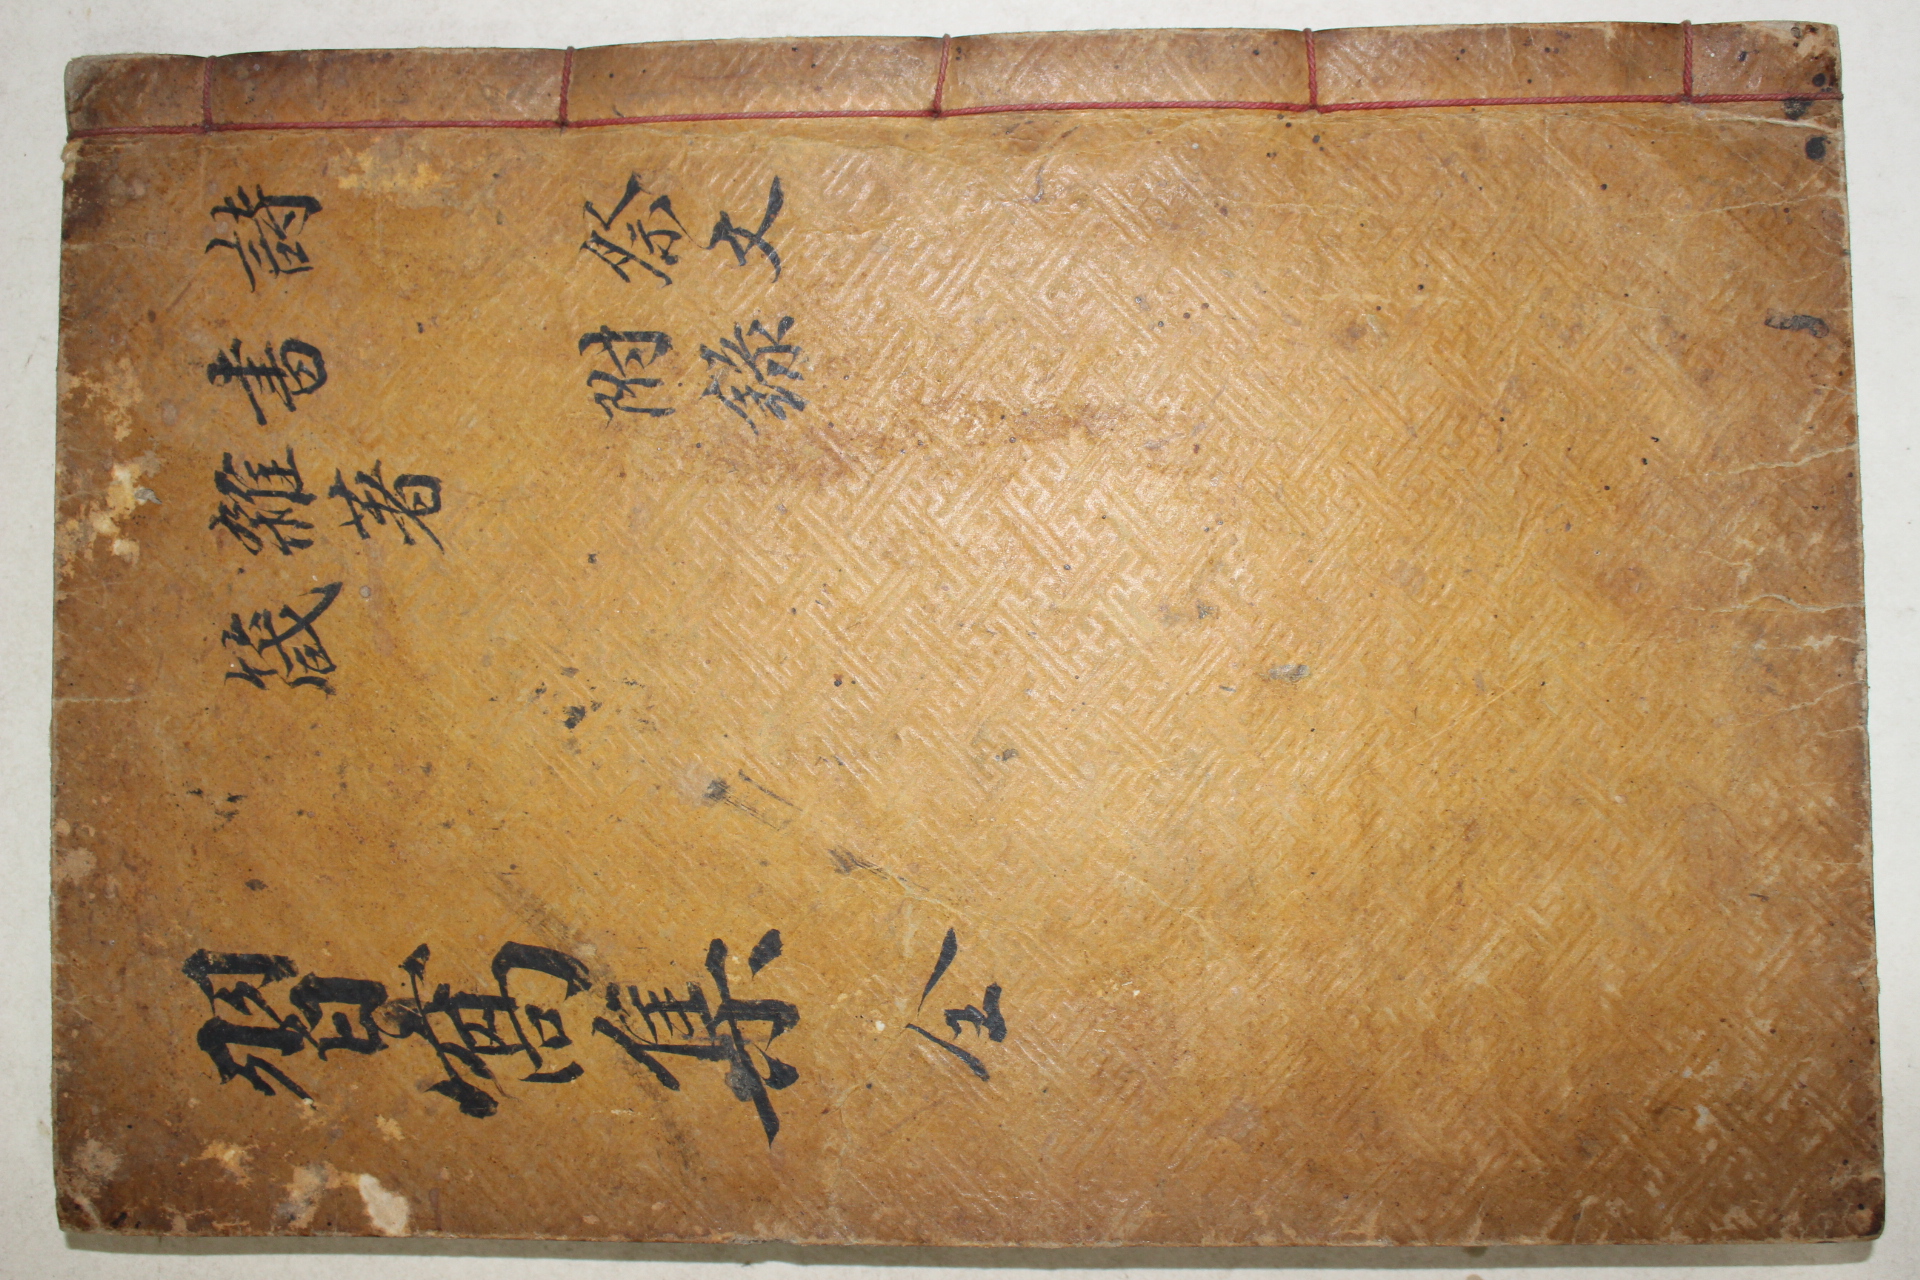 詩
書
雜著
箴
祭文
附錄
習窩集 全